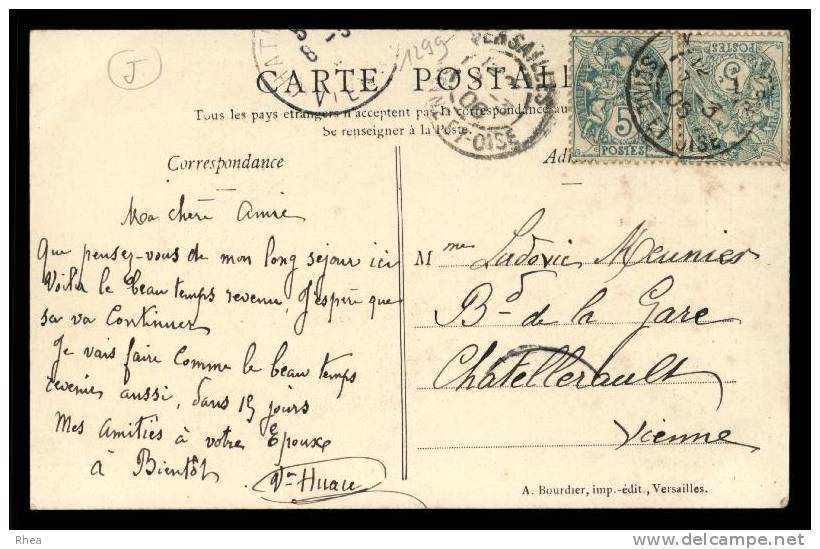 J
1299
CARTE POSTALE
Tous les pays étrangers n'acceptent pas la correspondance au
Se renseigner à la Poste.
VERSAILLES
SEINE-ET-OISE
5
POSTES
Correspondance
Ma chère Amie
Que pensez-vous de mon long séjour ici
Voilà le beau temps revenu, J'espère que
sa va Continuer
Je vais faire comme le beau temps
revenir aussi, dans 15 jours
Mes Amitiés à votre Epoux
à Bientôt
Vve Huau
Mme Ludovic Meunier
Bd de la Gare
Chatellerault
Vienne
A. Bourdier, imp.-édit., Versailles.
Rhea
www.delcampe.net